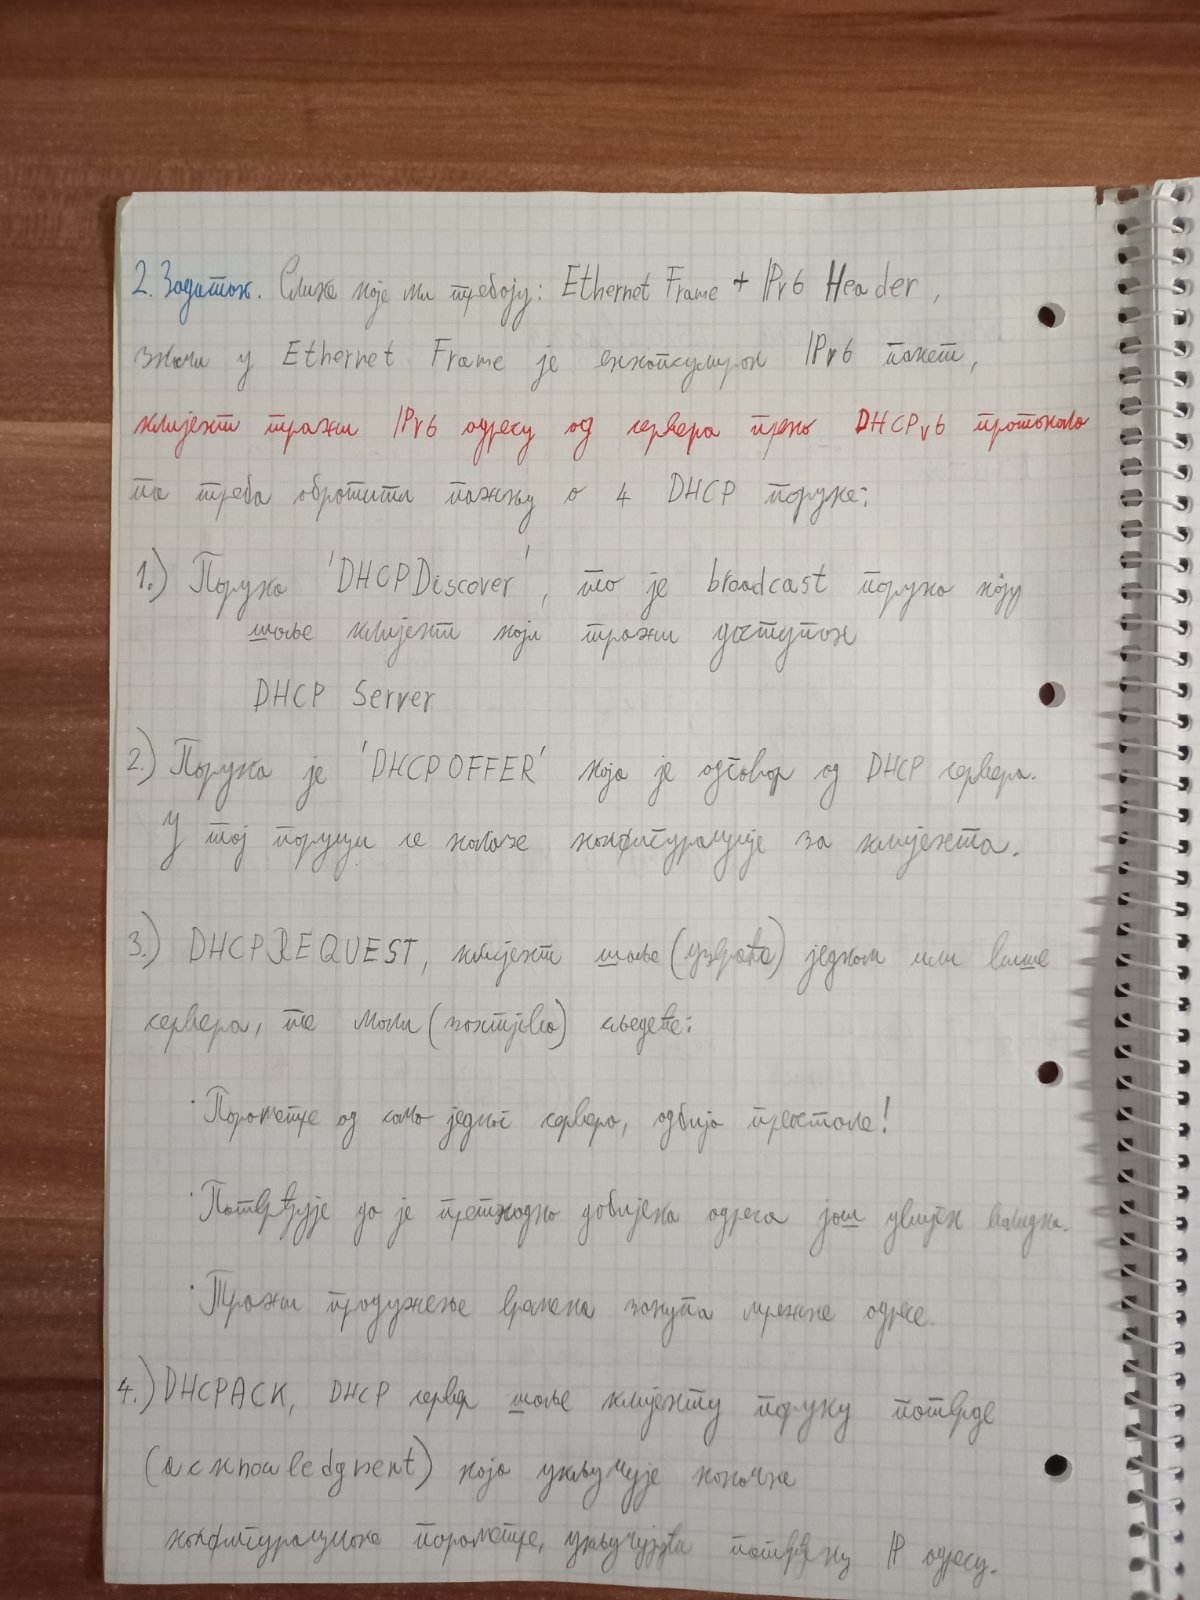 2. Задатак. Слике које ми требају: Ethernet Frame + IPv6 Header,
значи у Ethernet Frame је енкапсулиран IPv6 пакет,
клијент тражи IPv6 адресу од сервера преко DHCPv6 протокола
па треба обратити пажњу о 4 DHCP поруке:
1.) Порука 'DHCPDiscover', то је broadcast порука коју
шаље клијент који тражи доступан
DHCP Server
2.) Порука је 'DHCPOFFER' која је одговор од DHCP сервера.
У тој поруци се налазе конфигурације за клијента.
3.) DHCPREQUEST, клијент шаље (узвраћа) једном или више
сервера, те моли (захтјева) следеће:
· Параметре од само једног сервера, одбија преостале!
· Потврђује да је претходно добијена адреса још увијек валидна.
· Тражи продужење времена закупа мрежне адресе.
4.) DHCPACK, DHCP сервер шаље клијенту поруку потврде
(acknowledgment) која укључује коначне
конфигурационе параметре, укључујући потврђену IP адресу.